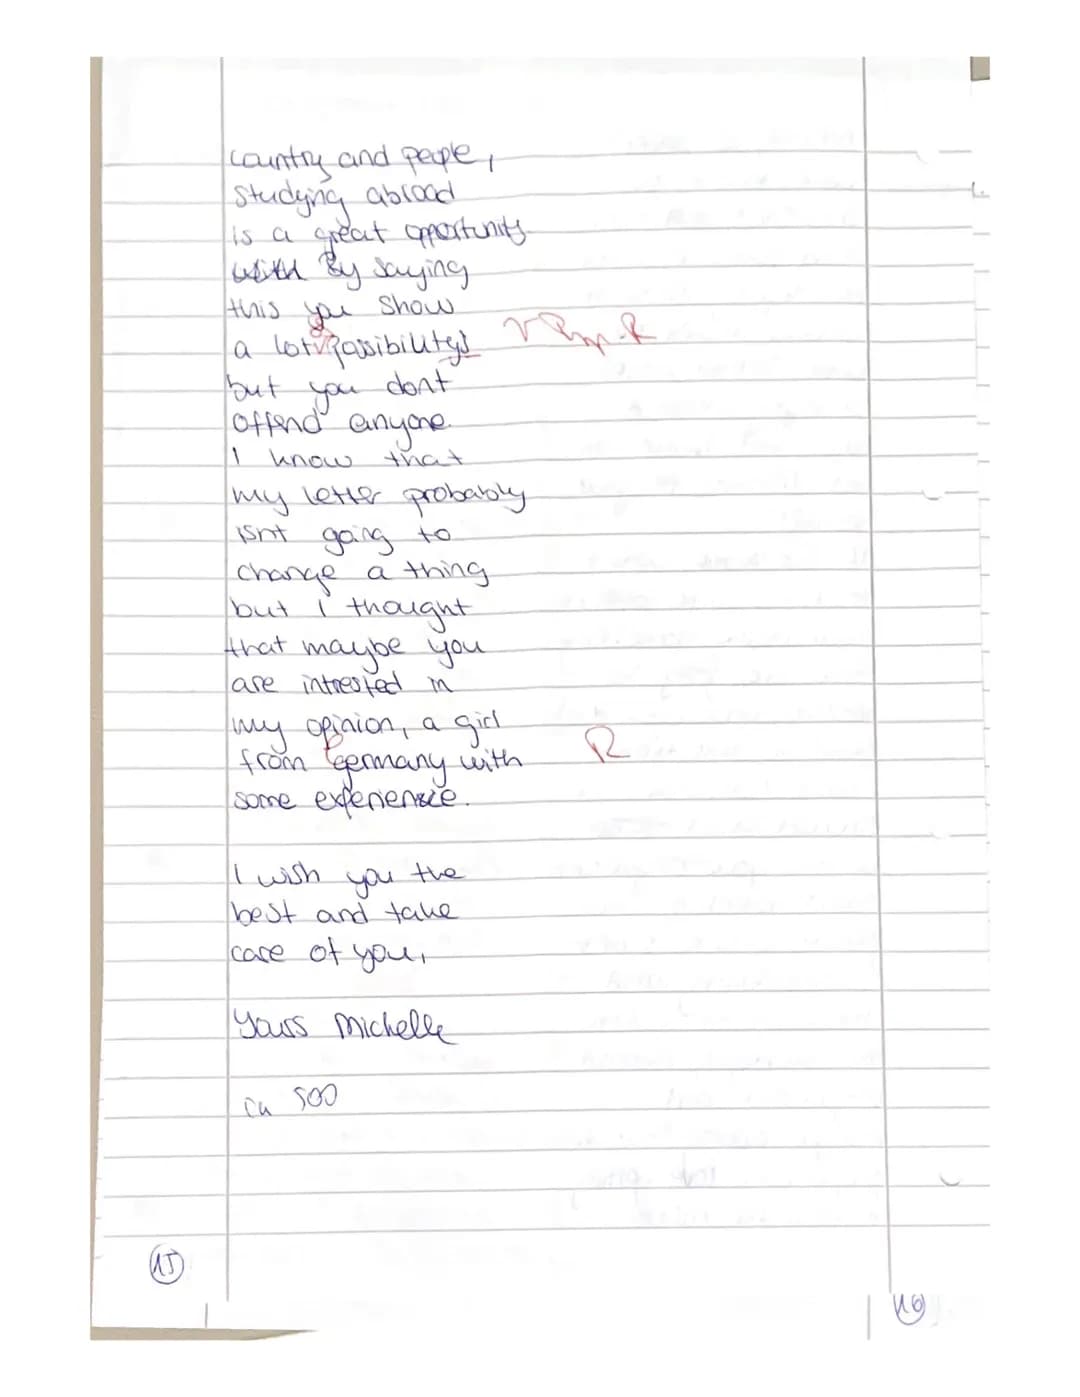 country and people,
studying abroad
is a great opportunity
By saying
this you show
a lot possibilitys
but you dont
offend anyone.
I know that
my letter probably
isnt going to
change a thing
but I thought
that maybe you
are intrested in
my opinion, a girl
R
from Germany with
some experience.
I wish you the
best and take
care of you,
Yours Michelle
ca 500
15
16